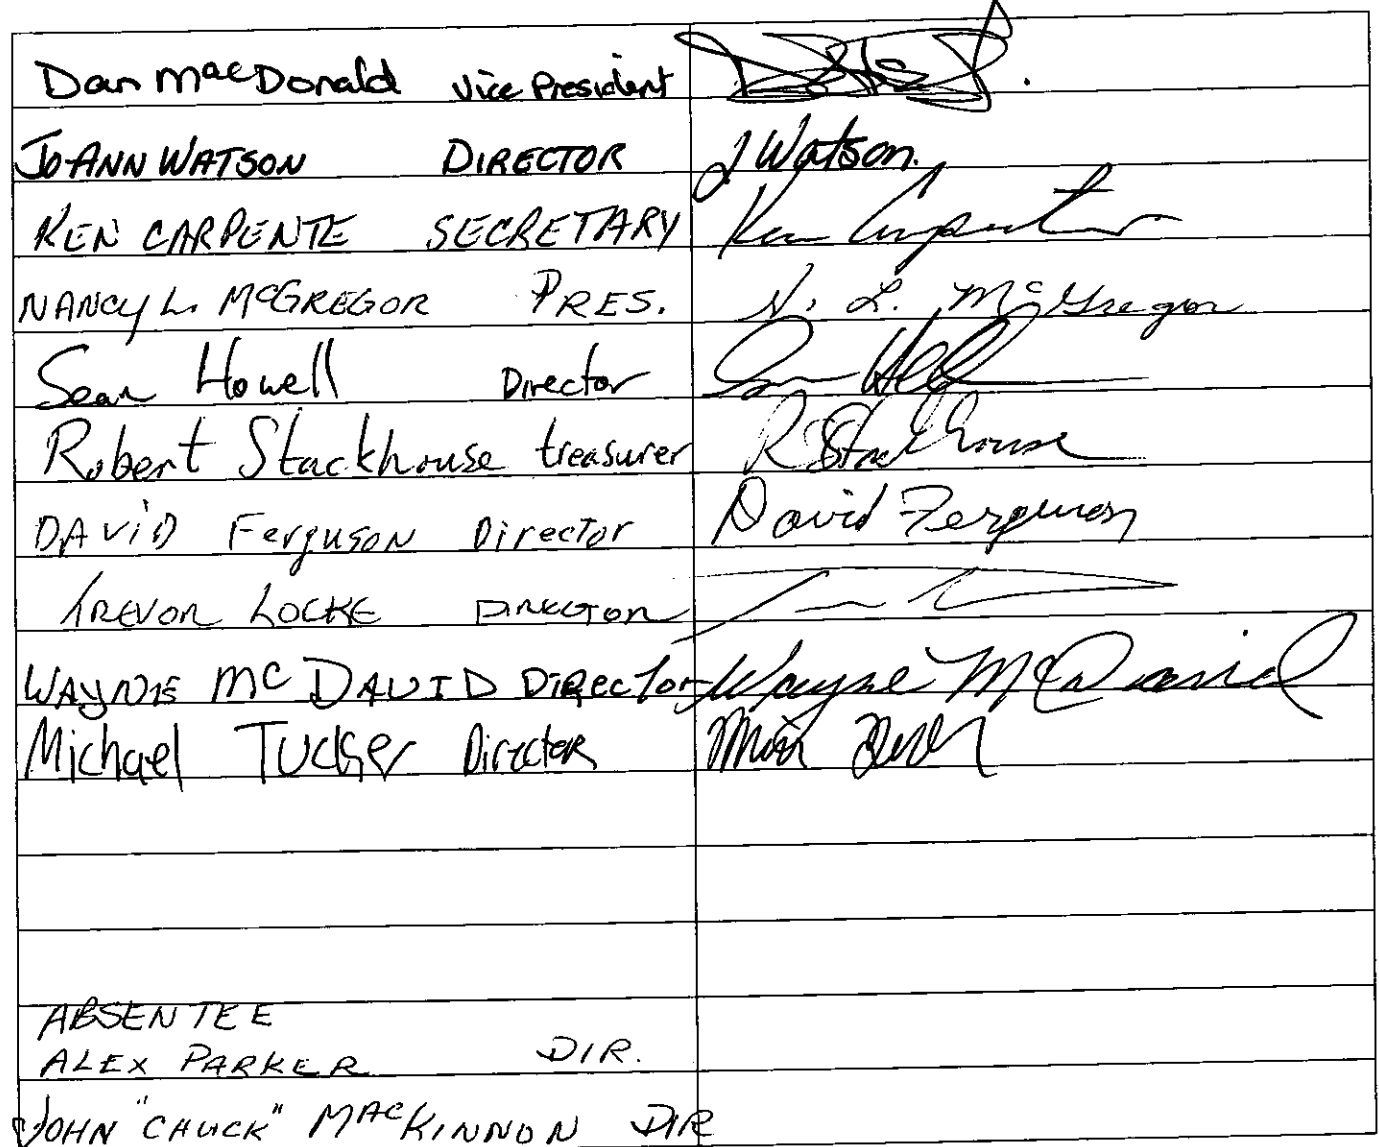 Dan MacDonald Vice President
JOANN WATSON DIRECTOR J Watson.
KEN CARPENTE SECRETARY Ken Carpenter
NANCY L. MCGREGOR PRES. N. L. McGregor
Sean Howell Director
Robert Stackhouse treasurer R Stackhouse
DAViD Ferguson Director David Ferguson
TREVOR LOCKE DIRECTOR
WAYNE MC DAVID DIRECTOR Wayne McDavid
Michael TUCKER Director
ABSENTEE
ALEX PARKER DIR.
JOHN "CHUCK" MACKINNON DIR